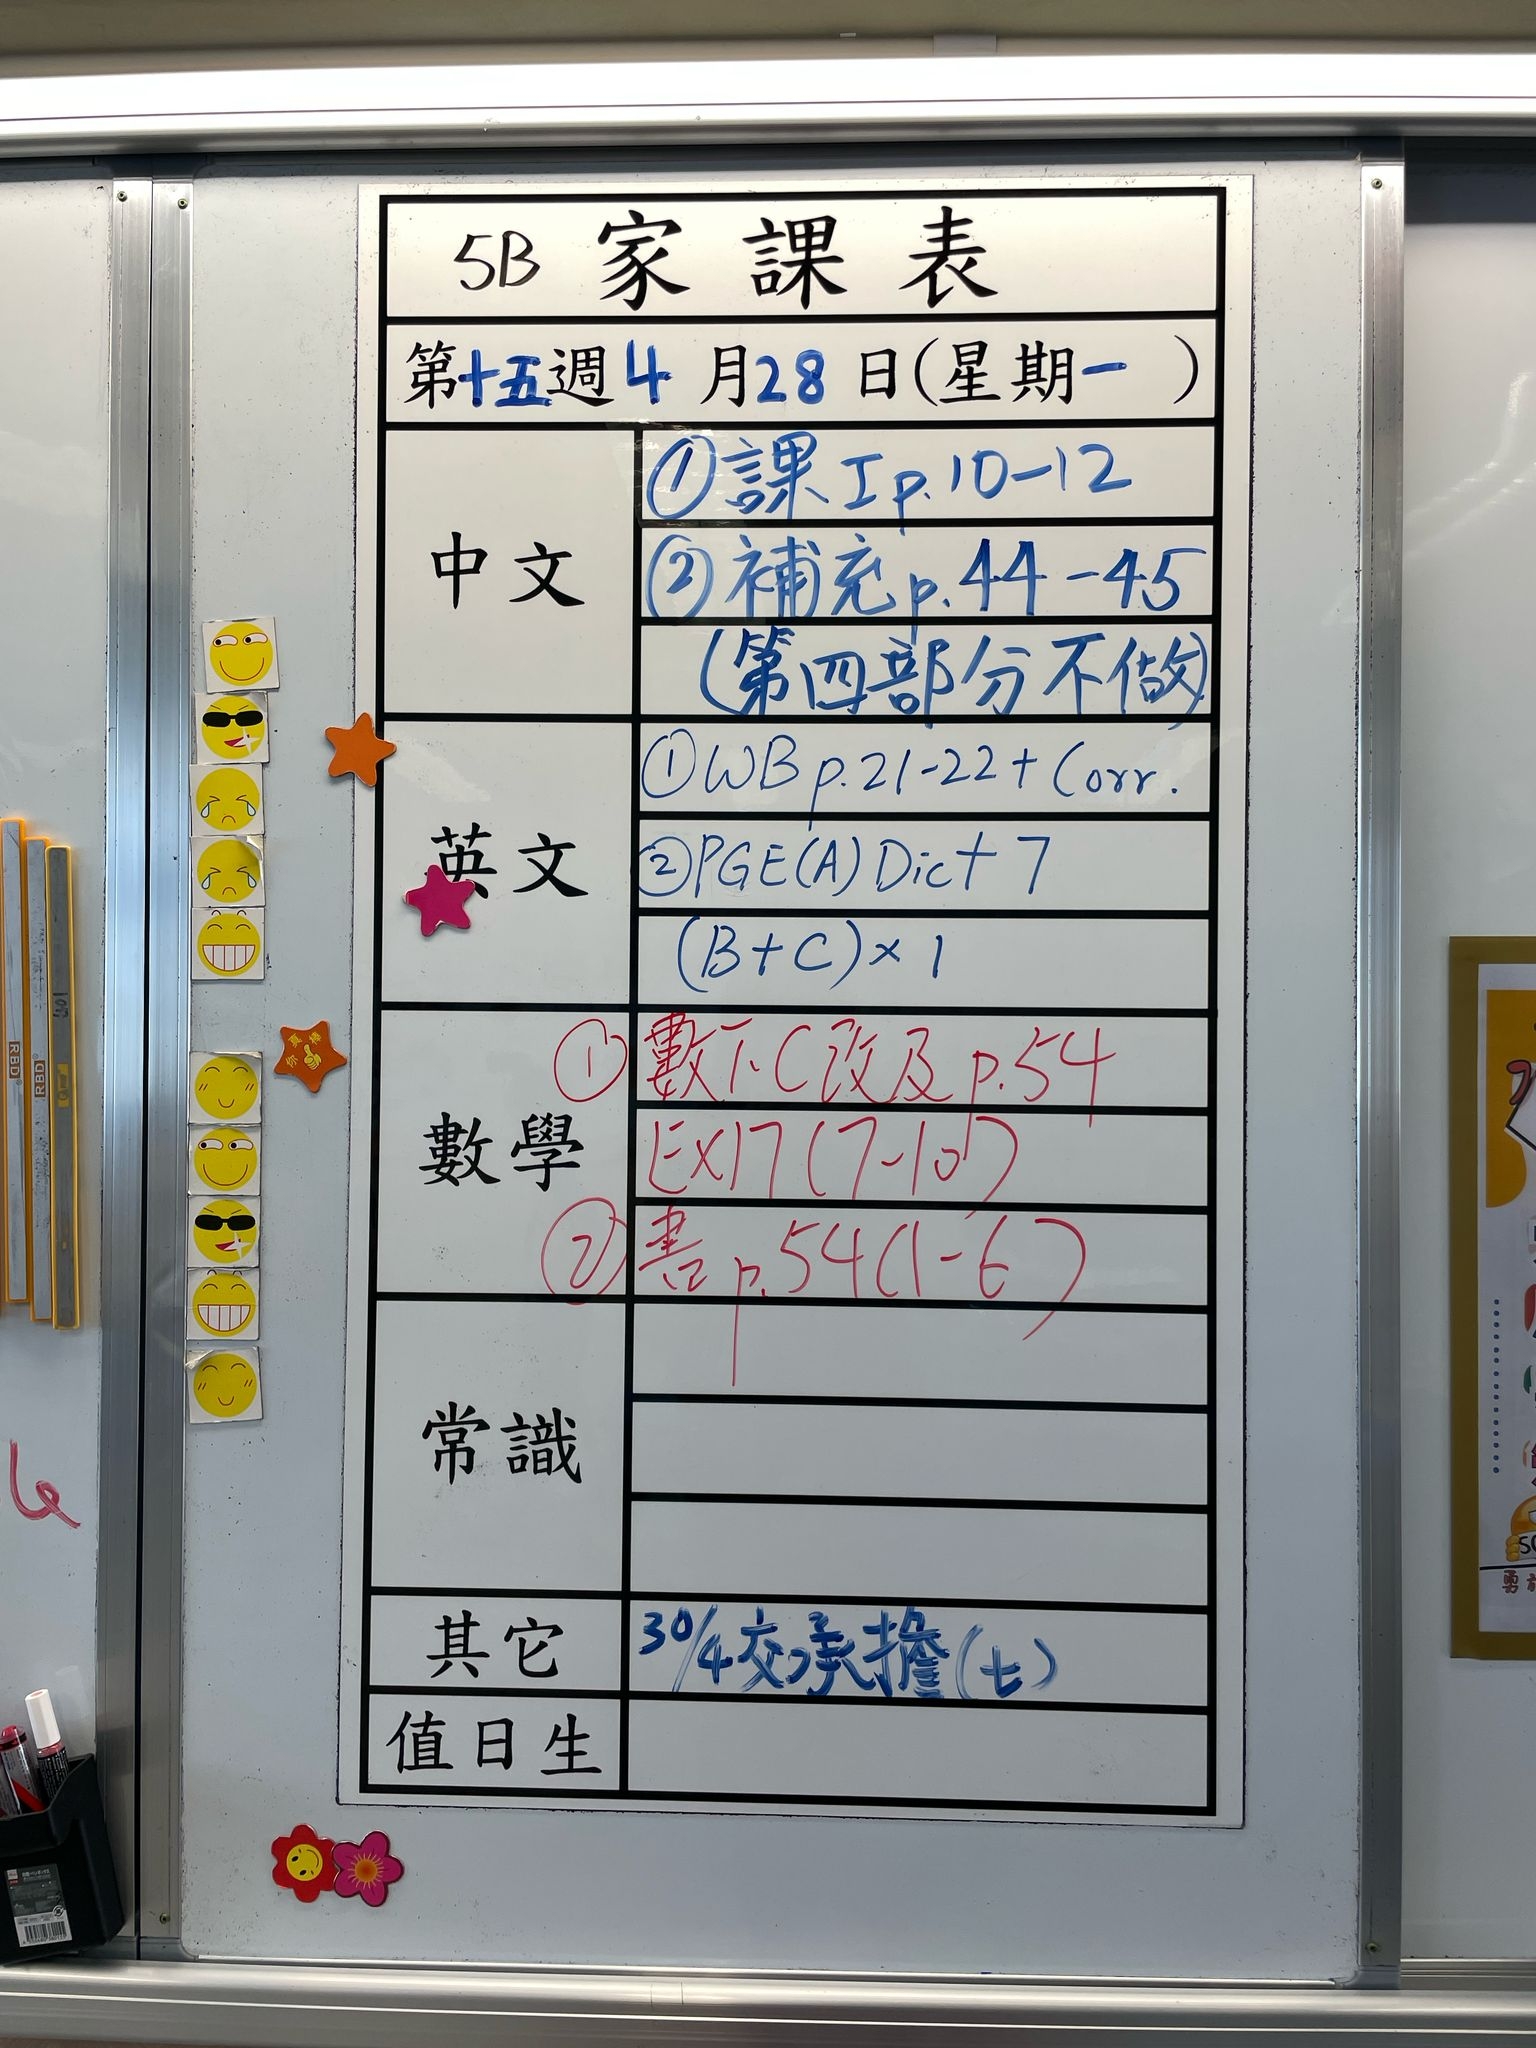 5B 家課表
第十五週4月28日(星期一)
中文
①課工p.10-12
②補充p.44-45
(第四部分不做)
英文
①WB p.21-22+Corr.
②PGE(A) Dict 7
(B+C)×1
數學
①數下C改及p.54
Ex17(7-10)
②書p.54(1-6)
常識
其它
30/4交承擔(七)
值日生
RBD
RBD